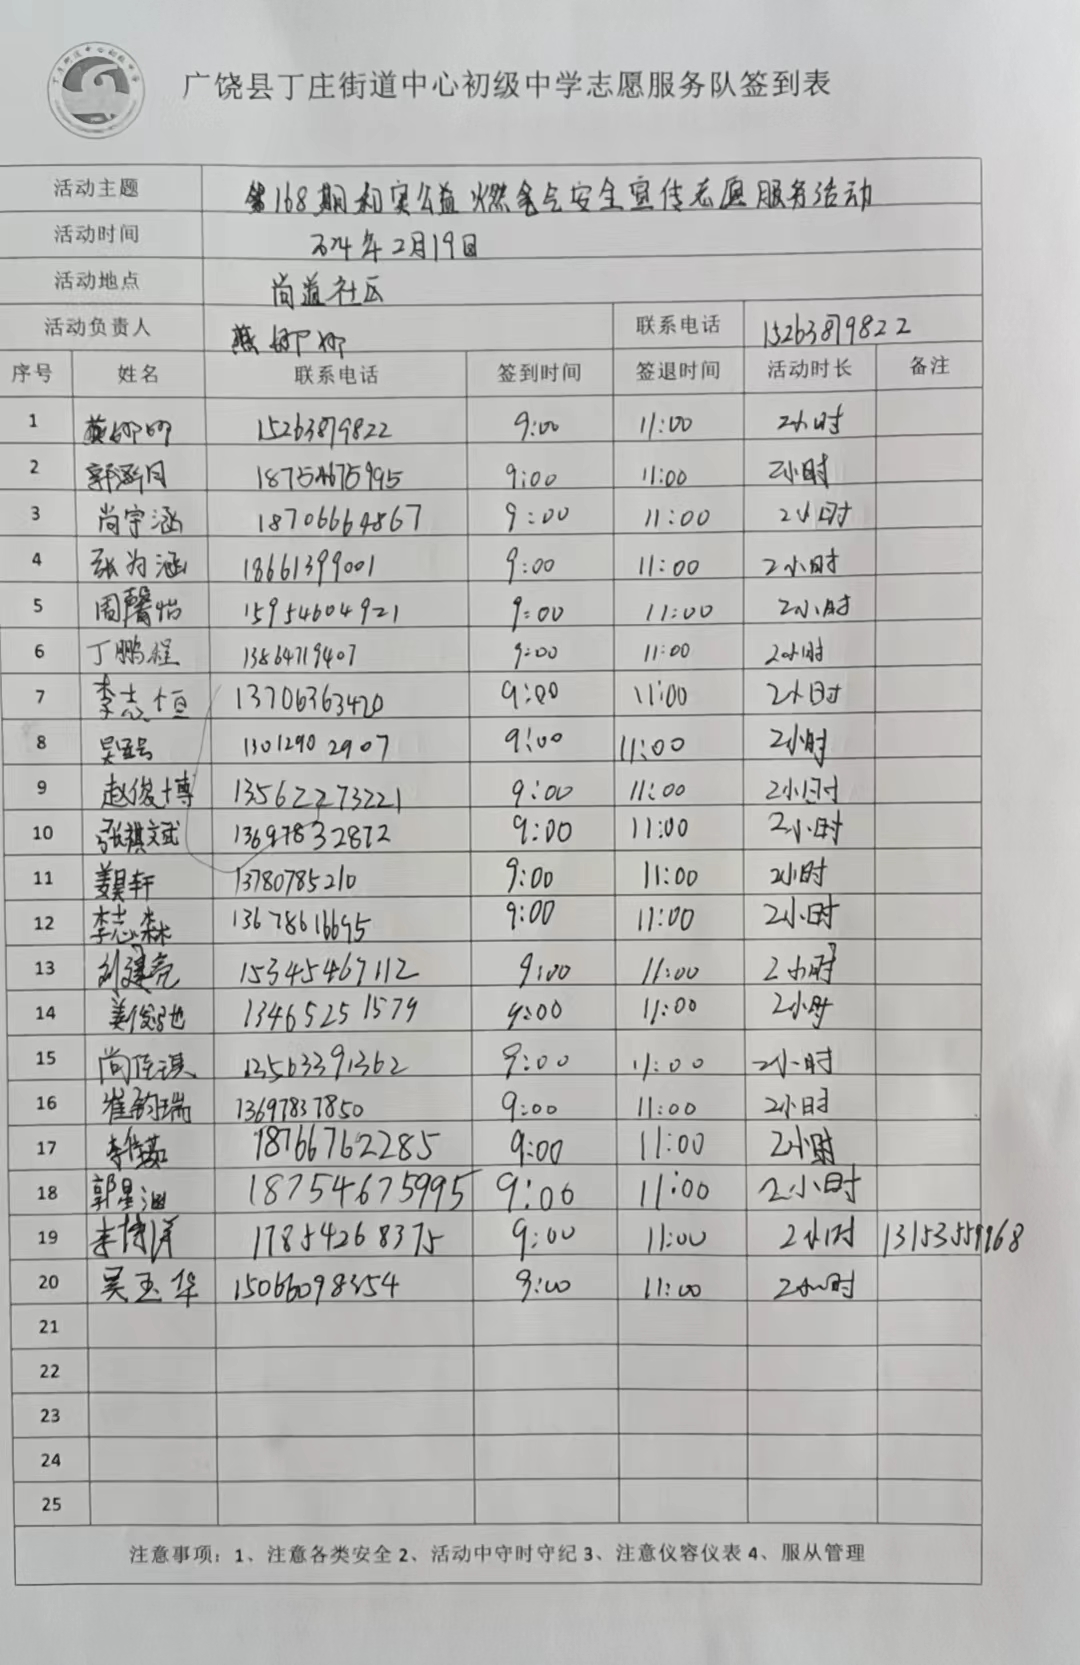 广饶县丁庄街道中心初级中学志愿服务队签到表
活动主题 第168期和实公益燃气安全宣传志愿服务活动
活动时间 2024年2月19日
活动地点 尚道社区
活动负责人 燕娜娜 联系电话 15263879822
序号 姓名 联系电话 签到时间 签退时间 活动时长 备注
1 燕娜娜 15263879822 9:00 11:00 2小时
2 18754675995 9:00 11:00 2小时
3 尚宇涵 18706664867 9:00 11:00 2小时
4 张为涵 18661399001 9:00 11:00 2小时
5 周馨怡 15954604921 9:00 11:00 2小时
6 丁鹏程 13864719407 9:00 11:00 2小时
7 李志恒 13706363420 9:00 11:00 2小时
8 13012902907 9:00 11:00 2小时
9 赵俊博 13562273221 9:00 11:00 2小时
10 张祺文武 13697832872 9:00 11:00 2小时
11 姜昊轩 13780785210 9:00 11:00 2小时
12 李志森 13678616695 9:00 11:00 2小时
13 刘建亮 15345467112 9:00 11:00 2小时
14 姜俊驰 13465251579 9:00 11:00 2小时
15 尚侄琪 13563391362 9:00 11:00 2小时
16 崔钧瑞 13697837850 9:00 11:00 2小时
17 18766762285 9:00 11:00 2小时
18 郭星涵 18754675995 9:00 11:00 2小时
19 李博洋 17854268375 9:00 11:00 2小时 13153559968
20 吴玉华 15066098354 9:00 11:00 2小时
21
22
23
24
25
注意事项：1、注意各类安全 2、活动中守时守纪 3、注意仪容仪表 4、服从管理